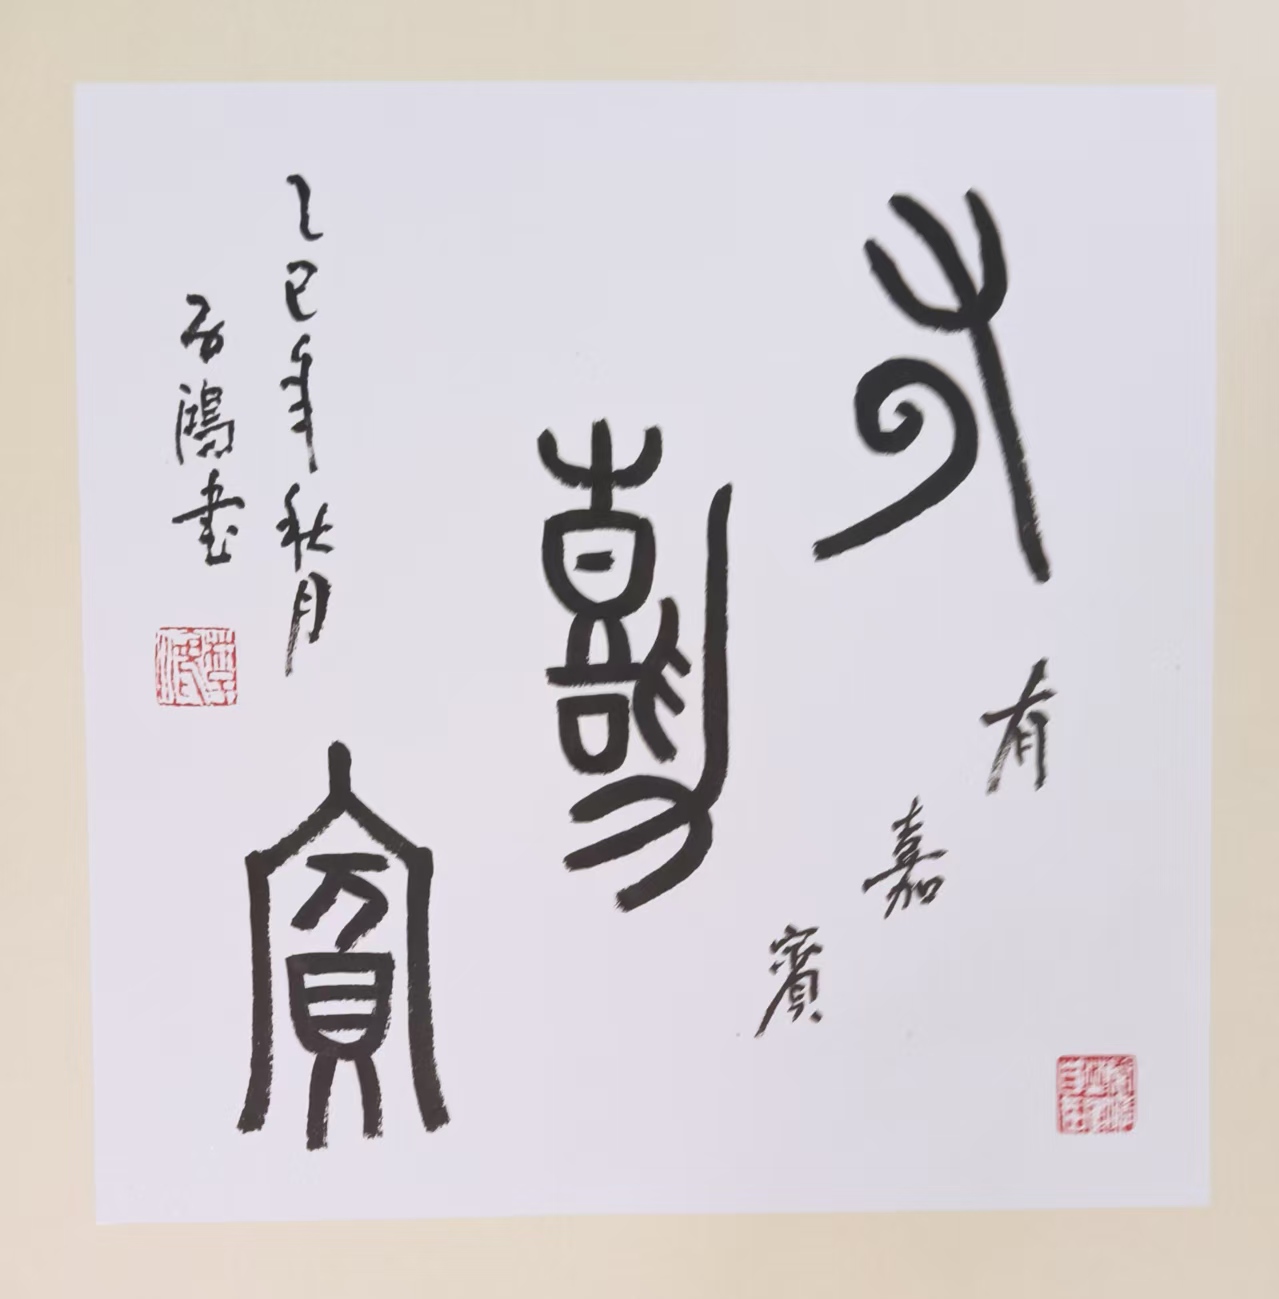 有嘉賓
有嘉賓
乙巳年秋月
鴻書